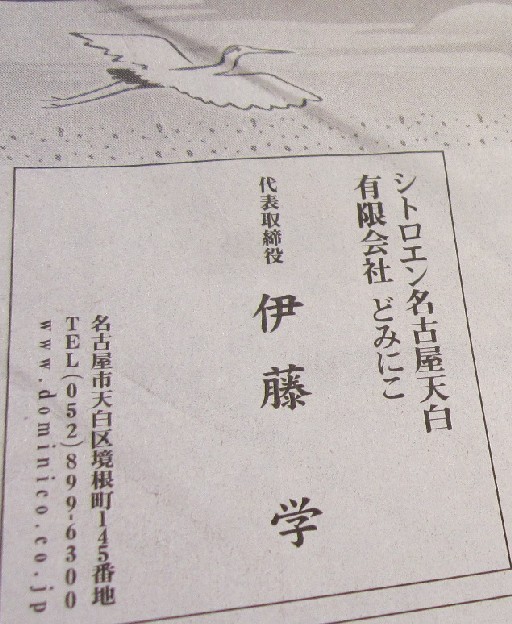 シトロエン名古屋天白
有限会社 どみにこ
代表取締役 伊藤 学
名古屋市天白区境根町145番地
TEL(052)899-6300
www.dominico.co.jp